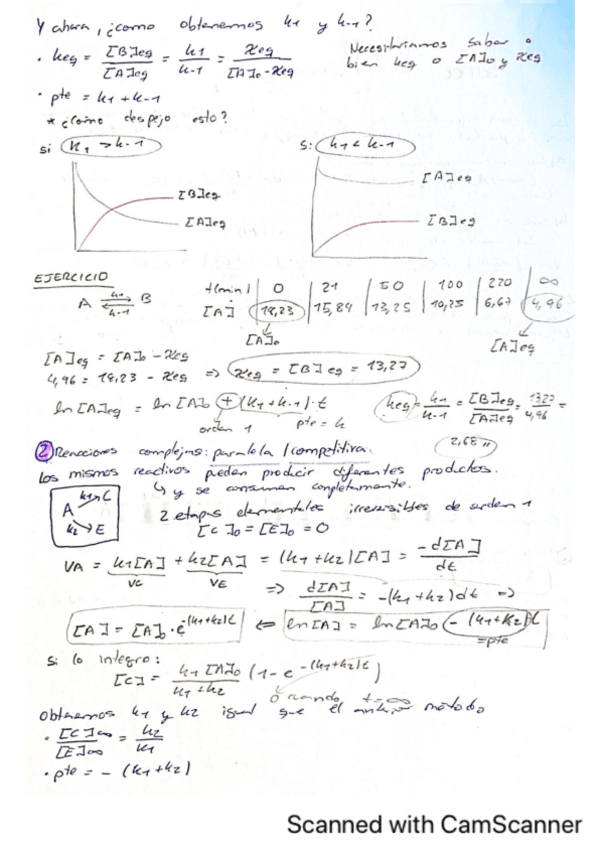 Y ahora, ¿como obtenemos k1 y k-1?
· keq = [B]eq/[A]eq = k1/k-1 = xeq/([A]0 - xeq)
Necesitariamos saber o
bien keq o [A]0 y xeq
· pte = k1 + k-1
* ¿como despejo esto?
si k1 > k-1
si k1 < k-1
[B]eq
[A]eq
[A]eq
[B]eq
EJERCICIO
A ⇄ B
k1
k-1
t(min) | 0 | 21 | 50 | 100 | 220 | ∞
[A] | 18,23 | 15,84 | 13,25 | 10,25 | 6,67 | 4,96
[A]0
[A]eq
[A]eq = [A]0 - xeq
4,96 = 18,23 - xeq ⇒ xeq = [B]eq = 13,27
ln[A]eq = ln[A]0 + (k1 + k-1)·t
orden 1
pte = k
keq = k1/k-1 = [B]eq/[A]eq = 1327/4,96 =
2,68
② Reacciones complejas: paralela / competitiva.
los mismos reactivos pueden producir diferentes productos.
↳ y se consumen completamente.
A k1→ C
k2→ E
2 etapas elementales irreversibles de orden 1
[C]0 = [E]0 = 0
VA = k1[A] + k2[A] = (k1 + k2)[A] = -d[A]/dt
VC
VE
⇒ d[A]/[A] = -(k1 + k2)dt ⇒
[A] = [A]0 · e^-(k1+k2)t ⇐ ln[A] = ln[A]0 - (k1 + k2)t
=pte
Si lo integro:
[C] = k1[A]0/(k1 + k2) (1 - e^-(k1+k2)t)
0 cuando t=∞
Obtenemos k1 y k2 igual que el anterior metodo
· [C]∞/[E]∞ = k2/k1
· pte = - (k1 + k2)
Scanned with CamScanner